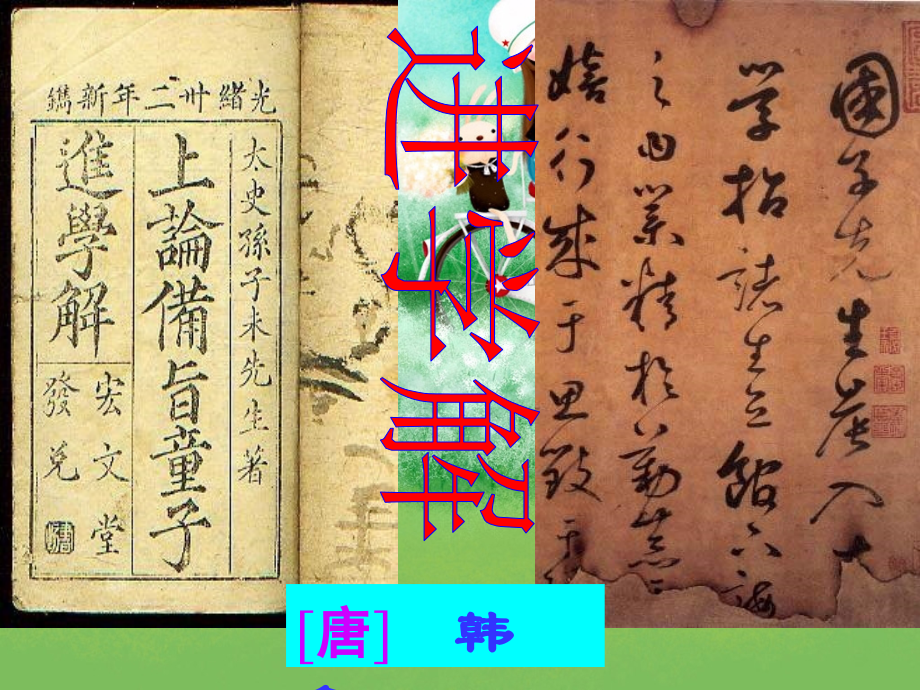 光緒卅二年新鐫
太史孫子未先生著
上論備旨童子
進學解
宏文堂
發兌
进学解
國子先生晨入太
學招諸生立館下誨
之曰業精於勤荒
嬉行成于思毀于
[唐] 韩